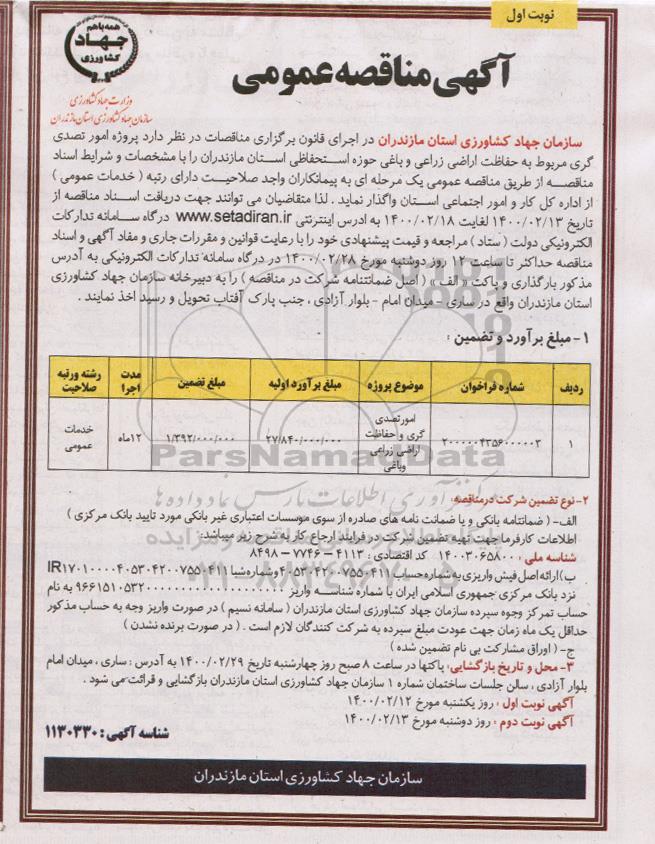 نوبت اول
همه با هم
جهاد
کشاورزی
وزارت جهاد کشاورزی
سازمان جهاد کشاورزی استان مازندران
آگهی مناقصه عمومی
سازمان جهاد کشاورزی استان مازندران در اجرای قانون برگزاری مناقصات در نظر دارد پروژه امور تصدی
گری مربوط به حفاظت اراضی زراعی و باغی حوزه استحفاظی استان مازندران را با مشخصات و شرایط اسناد
مناقصه از طریق مناقصه عمومی یک مرحله ای به پیمانکاران واجد صلاحیت دارای رتبه ( خدمات عمومی )
از اداره کل کار و امور اجتماعی استان واگذار نماید . لذا متقاضیان می توانند جهت دریافت اسناد مناقصه از
تاریخ ۱۴۰۰/۰۲/۱۳ لغایت ۱۴۰۰/۰۲/۱۸ به ادرس اینترنتی www.setadiran.ir درگاه سامانه تدارکات
الکترونیکی دولت ( ستاد ) مراجعه و قیمت پیشنهادی خود را با رعایت قوانین و مقررات جاری و مفاد آگهی و اسناد
مناقصه حداکثر تا ساعت ۱۲ روز دوشنبه مورخ ۱۴۰۰/۰۲/۲۸ در درگاه سامانه تدارکات الکترونیکی به آدرس
مذکور بارگذاری و پاکت « الف » ( اصل ضمانتنامه شرکت در مناقصه ) را به دبیرخانه سازمان جهاد کشاورزی
استان مازندران واقع در ساری - میدان امام - بلوار آزادی ، جنب پارک آفتاب تحویل و رسید اخذ نمایند .
۱- مبلغ برآورد و تضمین :
ردیف شماره فراخوان موضوع پروژه مبلغ برآورد اولیه مبلغ تضمین مدت اجرا رشته ورتبه صلاحیت
۱ ۲۰۰۰۰۰۴۳۵۶۰۰۰۰۰۳ امورتصدی گری و حفاظت اراضی زراعی وباغی ۲۷/۸۴۰/۰۰۰/۰۰۰ ۱/۳۹۲/۰۰۰/۰۰۰ ۱۲ماه خدمات عمومی
ParsNamadData
۲-نوع تضمین شرکت درمناقصه:
الف- ( ضمانتنامه بانکی و یا ضمانت نامه های صادره از سوی موسسات اعتباری غیر بانکی مورد تایید بانک مرکزی )
اطلاعات کارفرما جهت تهیه تضمین شرکت در فرایند ارجاع کار به شرح زیر میباشد:
شناسه ملی : ۱۴۰۰۳۰۶۵۸۰۰ کد اقتصادی : ۴۱۱۳ – ۷۷۴۶ – ۸۴۹۸
ب) ارائه اصل فیش واریزی به شماره حساب ۴۰۵۳۰۴۲۰۰۷۵۵۰۴۱۱ وشماره شبا IR۱۷۰۱۰۰۰۰۴۰۵۳۰۴۲۰۰۷۵۵۰۴۱۱
نزد بانک مرکزی جمهوری اسلامی ایران با شماره شناسه واریز
حساب تمرکز وجوه سپرده سازمان جهاد کشاورزی استان مازندران ( سامانه نسیم ) در صورت واریز وجه به حساب مذکور
حداقل یک ماه زمان جهت عودت مبلغ سپرده به شرکت کنندگان لازم است . ( در صورت برنده نشدن )
ج- ( اوراق مشارکت بی نام تضمین شده )
۳- محل و تاریخ بازگشایی: پاکتها در ساعت ۸ صبح روز چهارشنبه تاریخ ۱۴۰۰/۰۲/۲۹ به آدرس : ساری ، میدان امام
بلوار آزادی ، سالن جلسات ساختمان شماره ۱ سازمان جهاد کشاورزی استان مازندران بازگشایی و قرائت می شود .
آگهی نوبت اول : روز یکشنبه مورخ ۱۴۰۰/۰۲/۱۲
آگهی نوبت دوم : روز دوشنبه مورخ ۱۴۰۰/۰۲/۱۳
شناسه آگهی : ۱۱۳۰۳۳۰
سازمان جهاد کشاورزی استان مازندران